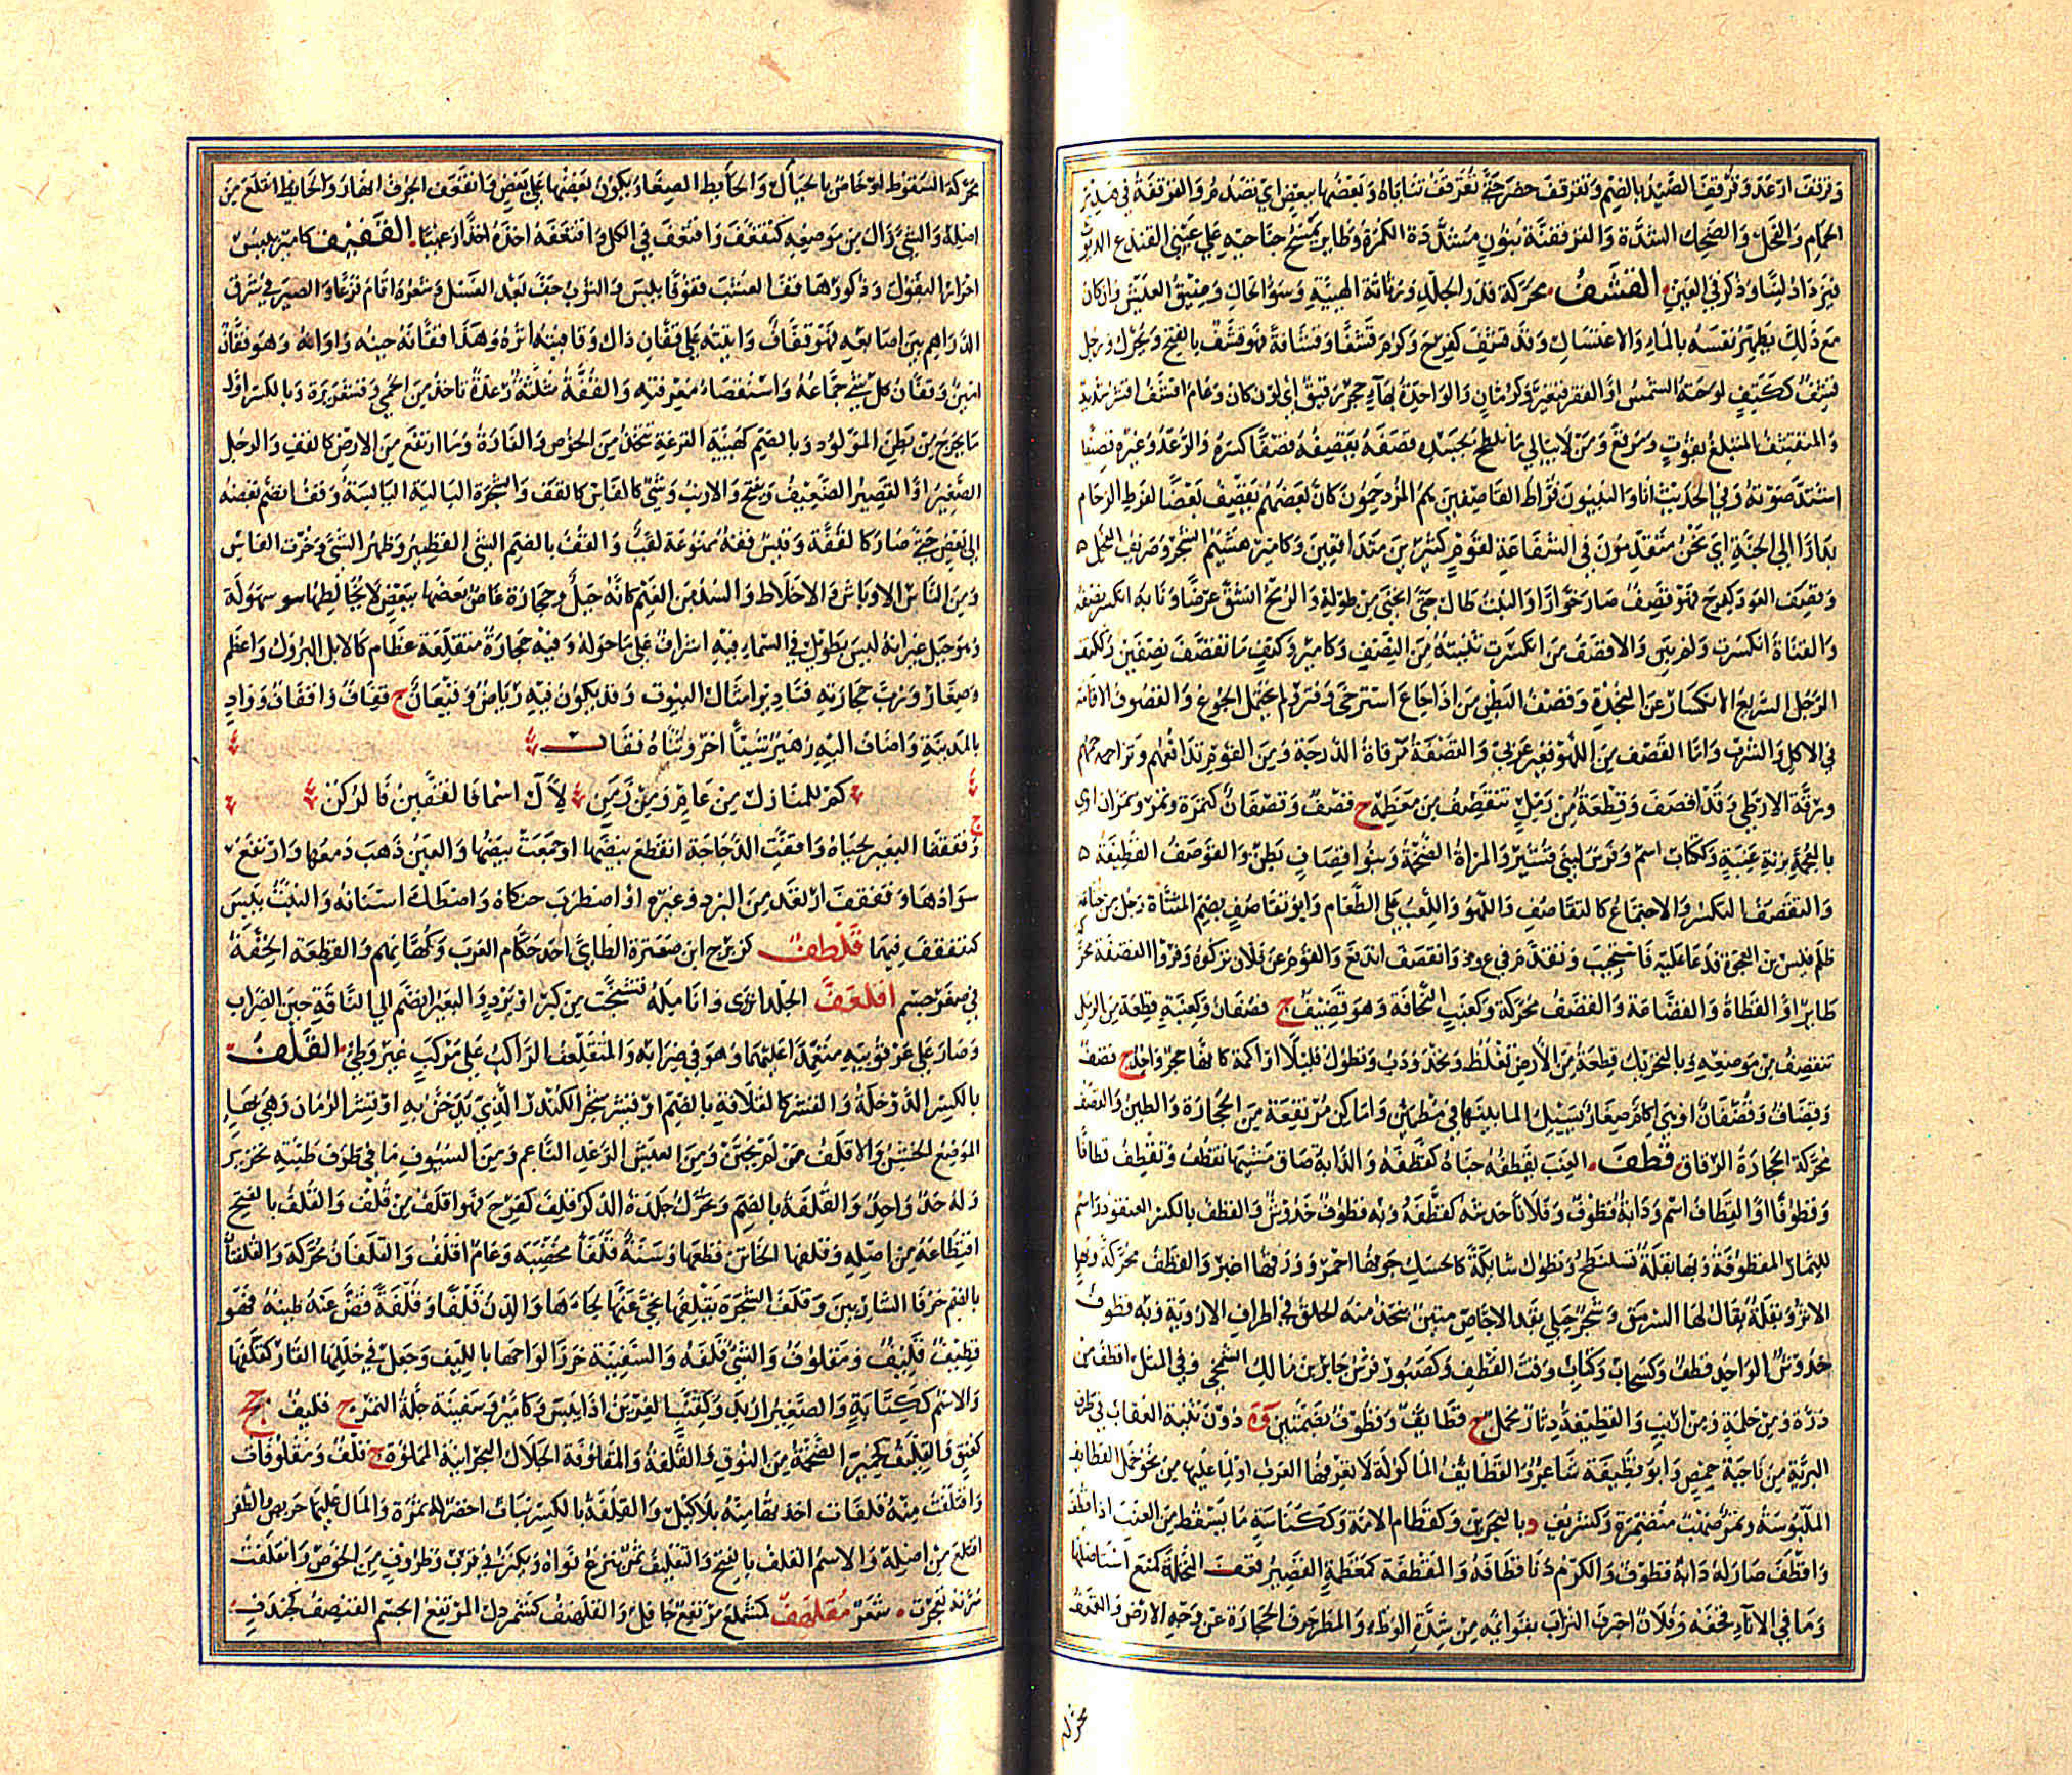 وقرقف ارعد وقرقف الصرد بالضم وتقرقف خصر حتى تقرقف ثناياه وبعضها ببعض اي تصدم والقرقفة في هدير
الحمام والفحل والضحك الشدة والقرقفنة بنون مشددة الكمرة وطاير يمسح جناحيه على عيني القنذع الديوث
فيزداد لينا وذكر في العين القشف محركة قذر الجلد ورثاثة الهيئة وسوء الحال وضيق العيش وان كان
مع ذلك يطهر نفسه بالماء والاغتسال وقد قشف كفرح وكرم قشفا وقشافة فهو قشف بالفتح ويحرك ورجل
قشف ككتف لوحته الشمس او الفقر فتغير وكرمان والواحدة بهاء حجر رقيق اي لون كان وعام اقشف اقشر شديد
والمتقشف المتبلغ بقوت ومرقع ومن لا يبالي بما تلطخ بجسده قصفه يقصفه قصفا كسره والرعد وغيره قصيفا
اشتد صوته وفي الحديث انا والنبيون فراط القاصفين هم المزدحمون كان بعضهم يقصف بعضا لفرط الزحام
بدارا الى الجنة اي نحن متقدمون في الشفاعة لقوم كثيرين متدافعين وكامير هشيم الشجر وصريف الفحل
وقصف العود كفرح فهو قصف صار خوارا والنبت طال حتى انحنى من طوله والرمح انشق عرضا ونابه انكسر نصفه
والقناة انكسرت ولم تبن والاقصف من انكسرت ثنيته من النصف وكامير وككتف ما تقصف نصفين وككتف
الرجل السريع الانكسار عن النجدة وقصف البطن من اذا جاع استرخى وفتر ولم يحتمل الجوع والقصوف الاقامة
في الاكل والشرب واما القصف من اللهو فغير عربي والقصفة مرقاة الدرجة ومن القوم تدافعهم وتزاحمهم
ورقة الارطى وقد اقصف وقطعة من رمل تنقصف من معظمه ج قصف وقصفان كتمرة وتمر وتمران او هي
بالمعجمة بزنة عنبة وككتاب اسم وفرس لبني قشير والمراة الضخمة وبنو قصاف بطن والقوصف القطيفة
والتقصف التكسر والاجتماع كالتقاصف واللهو واللعب على الطعام وابو تقاصف بضم المثناة رجل من خناعة
ظلم قيس بن العجوة فدعا عليه فاستجيب وتقدم في ع و ذ وانقصف اندفع والقوم عن فلان تركوه ومروا القضفة محركة
طاير او القطاة والقضافة والقضف محركة وكعنب النحافة وهو قضيف ج قضفان وكعنبة قطعة من الرمل
تنقضف من موضعه وبالتحريك قطعة من الارض تغلظ وتحدودب وتطول قليلا او اكمة كانها حجر واحد ج قضف
وقضاف وقضفان او هي اكام صغار يسيل الماء بينها في مطمئن واماكن مرتفعة من الحجارة والطين والقضف
محركة الحجارة الرقاق قطف العنب يقطفه جناه كقطفه والدابة ضاق مشيها تقطف وتقطف قطافا
وقطوفا او القطاف اسم ودابة قطوف وفلانا خدشه كقطفه وبه قطوف خدوش والقطف بالكسر العنقود واسم
للثمار المقطوفة وبهاء بقلة تسلنطح وتطول شايكة كالحسك جوفها احمر وورقها اغبر والقطف محركة وبهاء
الاثر وبقلة يقال لها السرمق وشجر جبلي بقدر الاجاص متين يتخذ منه الحلق في اطراف الاروية وبه قطوف
خدوش الواحد قطف وكسحاب وكتاب وقت القطف وكصبور فرس جابر بن مالك الشمخي وفي المثل اقطف من
ذرة ومن حلمة ومن ارنب والقطيفة دثار مخمل ج قطايف وقطف بضمتين وة دون ثنية العقاب في طرف
البرية من ناحية حمص وابو قطيفة شاعر والقطايف الماكولة لا تعرفها العرب او لما عليها من نحو خمل القطايف
الملبوسة وتمر صهب متضمرة وكشريف د بالبحرين وكقطام الامة وككناسة ما يسقط من العنب اذا قطف
واقطف صار له دابة قطوف والكرم دنا قطافه والمقطفة كمعظمة القصير قعف النخلة كمنع استاصلها
وما في الاناء قحفه وفلان اجترف التراب بقوايمه من شدة الوطء والمطر جرف الحجارة عن وجه الارض والقعف
محركة
محركة السقوط او خاص بالحيال والحايط الصغار يكون بعضها على بعض فانقعف الجرف انهار والحايط انقلع من
اصله والشيء زال من موضعه كتقعف واقتعف في الكل واقتعفه اخذه اخذا رعيبا القفيف كامير يبيس
احرار البقول وذكورها قف العشب قفوفا يبس والثوب جف بعد الغسل وشعره قام فزعا والصيرفي سرق
الدراهم بين اصابعه فهو قفاف واتيته على قفان ذاك وقافيته اثره وهذا قفانه حينه واوانه وهو قفان
امين وقفان كل شيء جماعه واستقصاء معرفته والقفة مثلثة رعدة تاخذ من الحمى وقشعريرة وبالكسر اول
ما يخرج من بطن المولود وبالضم كهيئة القرعة تتخذ من الخوص والقارة وما ارتفع من الارض كالقف والرجل
الصغير او القصير الضعيف ويفتح والارنب وشيء كالفاس كالقف والشجرة البالية اليابسة وقف انضم بعضه
الى بعض حتى صار كالقفة وقيس قفة ممنوعة لقب والقف بالضم الشيء القصير وظهر الشيء وخرت الفاس
ومن الناس الاوباش والاخلاط والسد من الغيم كانه جبل وحجارة غاص بعضها ببعض لا يخالطها سهولة
وهو جبل غير انه ليس بطويل في السماء فيه اشراف على ما حوله وفيه حجارة متقلعة عظام كالابل البروك واعظم
وصغار ورب قف حجارته فنادير امثال البيوت وقد يكون فيه رياض وقيعان ج قفاف واقفاف وواد
بالمدينة واضاف اليه زهير شيئا اخر وثناه فقال
كم للمنازل من عام ومن زمن لآل اسماء فالقفين فالركن
وقفقفا البعير لحياه واقفت الدجاجة انقطع بيضها او جمعت بيضها والعين ذهب دمعها وارتفع
سوادها وقفقف ارتعد من البرد وغيره او اضطرب حنكاه واصطكت اسنانه والنبت يبس
كتقفقف فيهما قلطف كزبرج ابن صعترة الطائي احد حكام العرب وكهانهم والقطعة الخفة
في صغر جسم اقلعف الجلد انزوى وانامله تشنجت من كبر او برد والبعير انضم الى الناقة حين الضراب
وصار على عرقوبيه معتمدا عليهما وهو في ضرابه والمتقلعف الراكب على مركب غير وطئ القلف
بالكسر الدوخلة والقشر كالقلافة بالضم او قشر شجر الكندر الذي يدخن به او قشر الرمان وهي بهاء
الموضع الخشن والاقلف من لم يختن ومن العيش الرغد الناعم ومن السيوف ما في طرف ظبته تحزيز
وله حد واحد والقلفة بالضم ويحرك جلدة الذكر قلف كفرح فهو اقلف من قلف والقلف بالفتح
اقتطاعه من اصله وقلفها الخاتن قطعها وسنة قلفاء مخصبة وعام اقلف والقلفان محركة والقلفتان
بالضم حرفا الشاربين وقلف الشجرة يقلفها نحى عنها لحاءها والدن قلفا وقلفة فض عنه طينه فهو
قطيف قليف ومقلوف والشيء قلفه والسفينة خرز الواحها بالليف وجعل في خللها القار كقلفها
والاسم ككتابة والصغير ازبد وكقنب الغرين اذا يبس وكامير وسفينة جلة التمر ج قليف جج
كعنق والقليف كحمير الضخمة من النوق والقلفة والمقلوفة الجلال البحرانية المملوة ج قلف ومقلوفات
واقتلفت منه قلفات اخذتها منه بلا كيل والقلفة بالكسر نبات اخضر له ثمرة والمال عليها حريص والظفر
اقتلع من اصله والاسم القلف بالفتح والتقليف تمر ينزع نواه ويكنز في قرب وظروف من الخوص وانقلفت
سرته تعجرت شعر مقلصف كمشمعل مرتفع جافل والقلهف كشمردل المرتفع الجسم القنصف كجندب